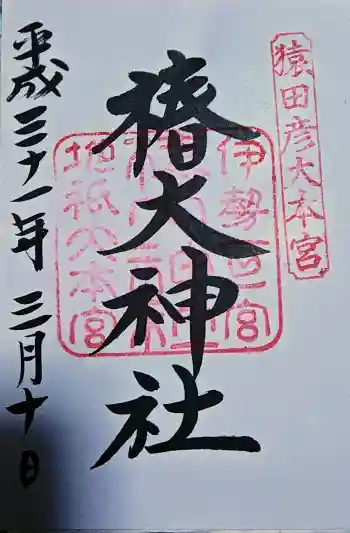 猿田彦大本宮
椿大神社
伊勢一宮
地祇大本宮
平成三十一年 三月十日